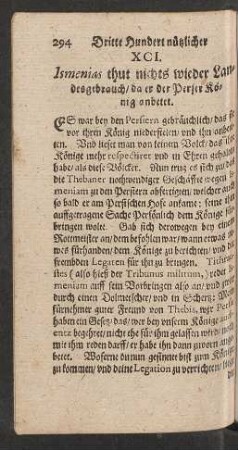 294 Dritte Hundert nützlicher
XCI.
Ismenias thut nichts wieder Lan-
desgebrauch / da er der Perser Kö-
nig anbetet.
ES war bey den Persiern gebräuchlich / das sie
vor ihrem König niederfielen / und ihn anbe-
ten. Und lieset man von keinem Volck / das ihre
Könige mehr respectieret und in Ehren gehalten
habe / als diese Völcker. Nun trug es sich zu / das
die Thebaner nothwendiger Geschäffte wegen Is-
meniam zu den Persiern abfertigten / welcher auch
so bald er am Persischen Hofe ankame: seine ihm
auffgetragene Sache Persöhnlich dem Könige für-
bringen wolte. Gab sich derowegen bey einem
Rottmeister an / dem befohlen war / wann etwas ne-
wes fürhanden / dem Könige zu berichten / und die
frembden Legaten für ihn zu bringen. Tithrau-
stes (also hieß der Tribunus militum,) redet Is-
meniam auff sein Vorbringen also an / und zwar
durch einen Dolmetscher / und in Schertz: Mein
fürnehmer guter Freund von Thebis, wir Persier
haben ein Gesetz / das / wer bey unserm Könige audi-
entz begehret / nicht ehe für ihm gelassen wird / noch
mit ihm reden darff / er habe ihn dann zuvorn ange-
betet. Woferne du nun gesinnet bist zum Könige
zu kommen / und deine Legation zu verrichten /